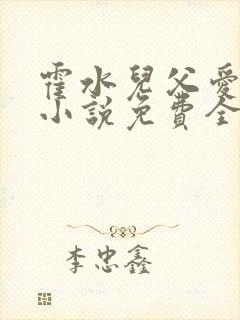 霍水兒父愛
小說免費全
李忠鑫